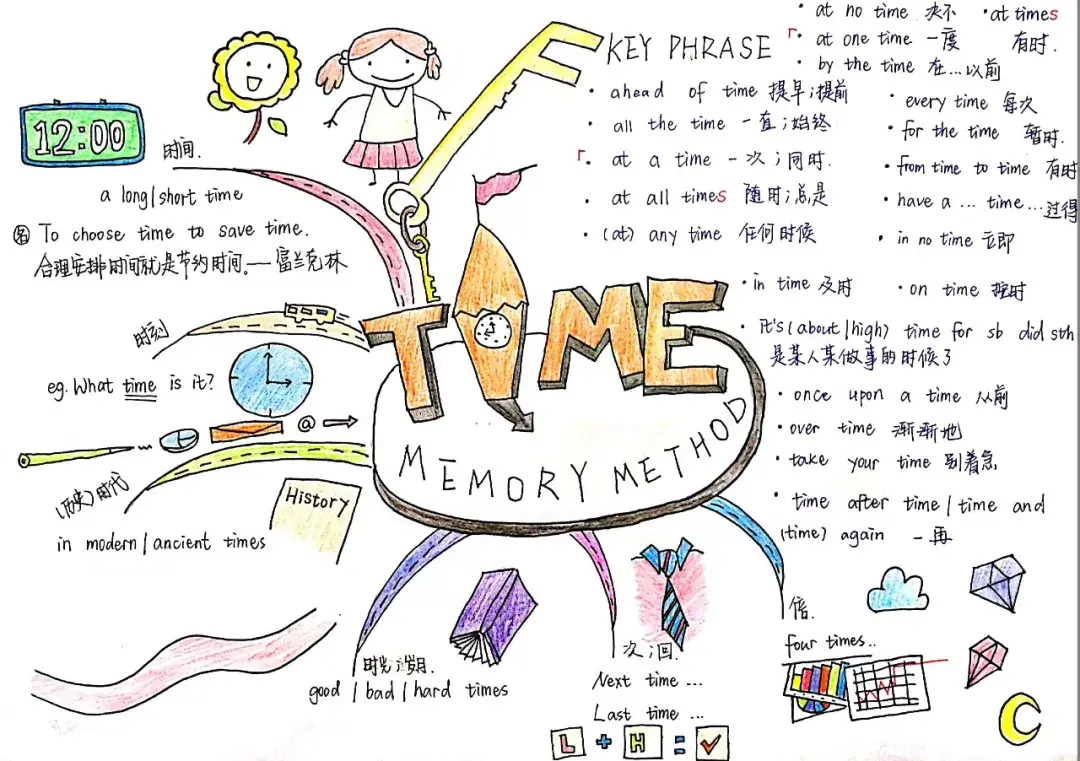 12:00
时间.
a long/short time
名 To choose time to save time.
合理安排时间就是节约时间。—富兰克林
时刻
eg. What time is it?
@
(历史)时代
History
in modern/ancient times
TIME
MEMORY METHOD
时光;岁月.
good / bad / hard times
次;回.
Next time ...
Last time ...
L + H = ✓
倍.
four times..
KEY PHRASE
• at no time 决不
• at times 有时.
• at one time 一度
• by the time 在...以前
• ahead of time 提早;提前
• all the time 一直;始终
• at a time 一次;同时.
• at all times 随时;总是
• (at) any time 任何时候
• every time 每次
• for the time 暂时.
• from time to time 有时
• have a ... time ...过得
• in no time 立即
• in time 及时
• on time 按时
• it's (about/high) time for sb did sth
是某人某做事的时候了
• once upon a time 从前
• over time 渐渐地
• take your time 别着急
• time after time / time and
(time) again 一再